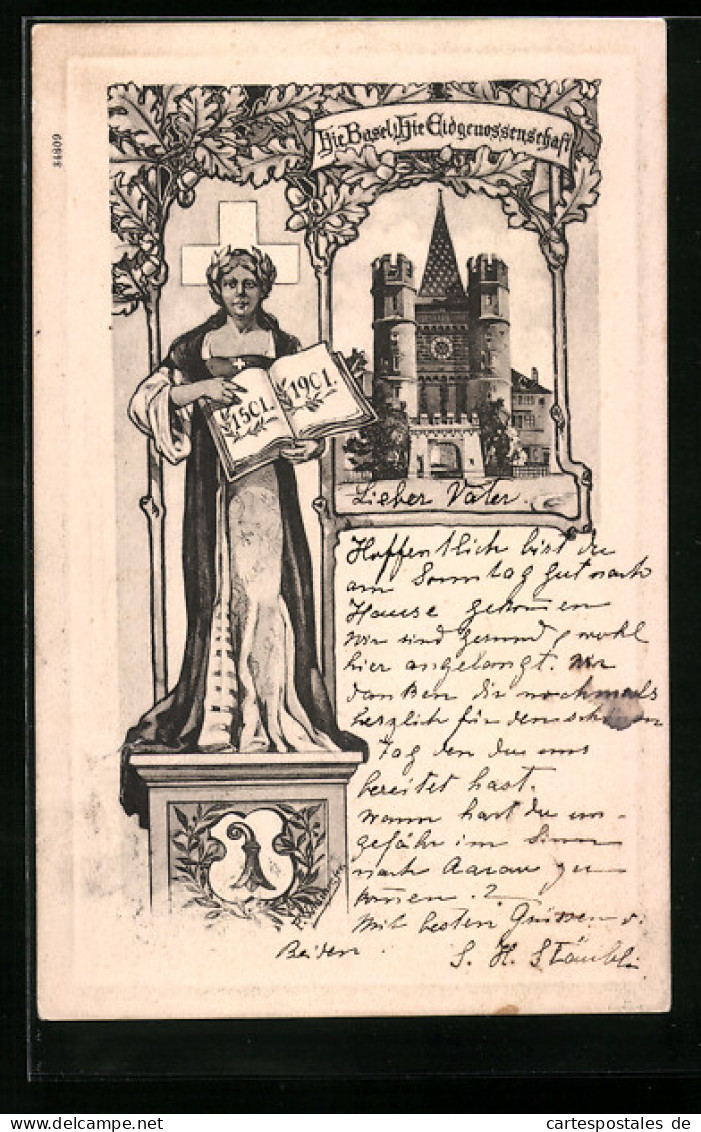 34809
Hie Basel, Hie Eidgenossenschaft
15C1. 19C1.
Lieber Vater.
Hoffentlich bist du
am Sonntag gut nach
Hause gekommen
Wir sind gesund & wohl
hier angelangt. Wir
danken dir nochmals
herzlich für den schönen
Tag den du uns
bereitet hast.
Wann hast du un-
gefähr im Sinn
nach Aarau zu
kommen.?
Mit besten Grüssen v.
Beiden. S. H. Stäubli
delcampe.net
cartespostales de